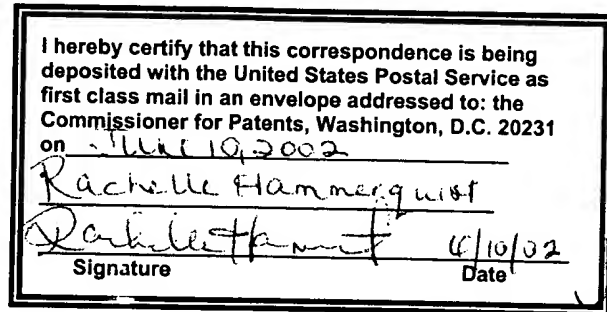 I hereby certify that this correspondence is being
deposited with the United States Postal Service as
first class mail in an envelope addressed to: the
Commissioner for Patents, Washington, D.C. 20231
on June 10, 2002
Rachelle Hammerquist
6/10/02
Signature Date